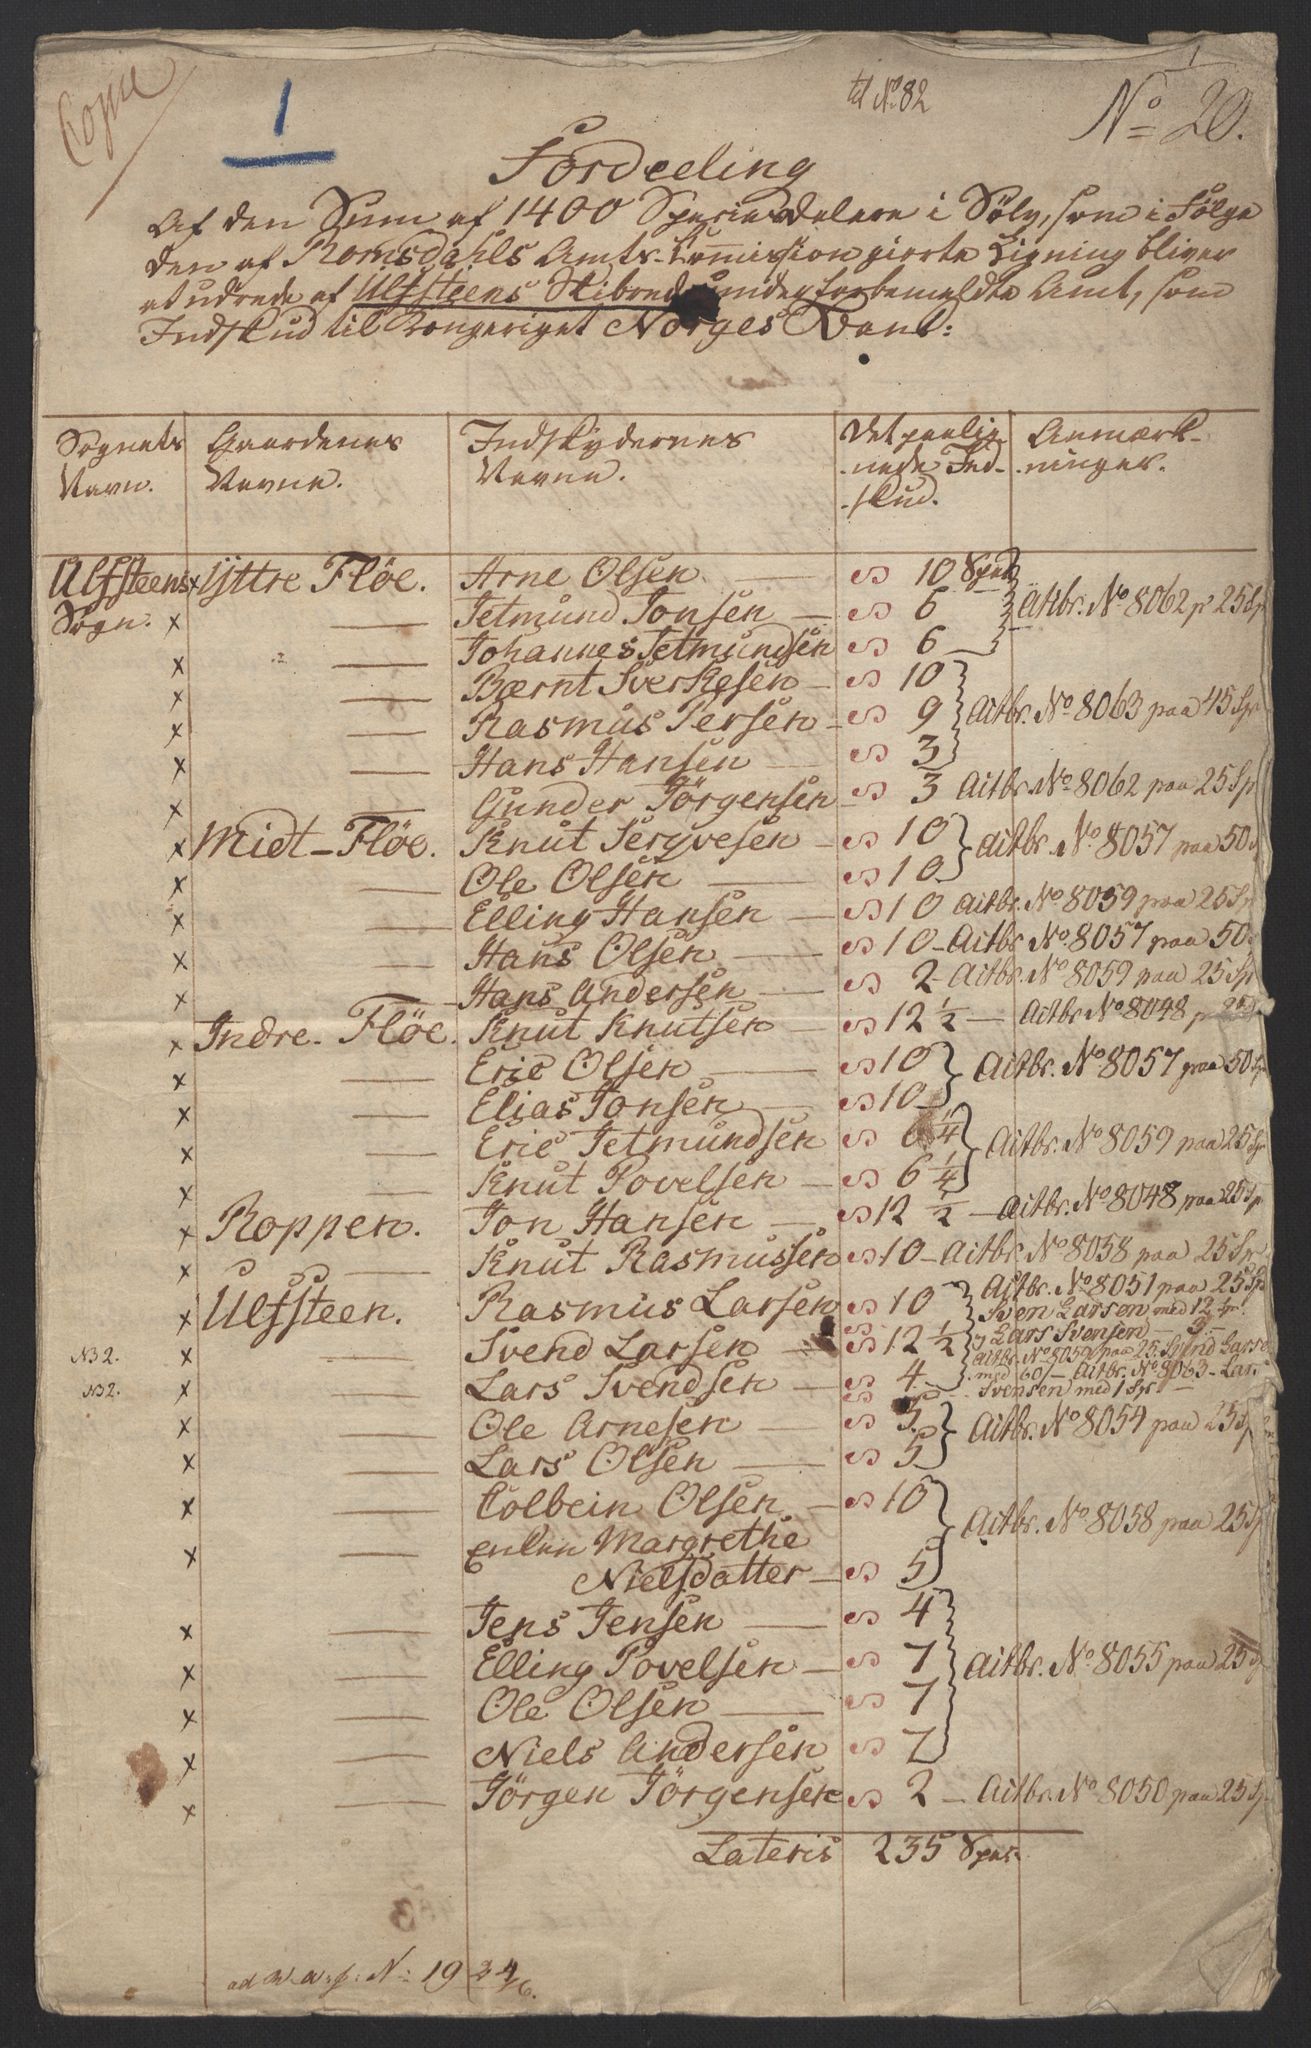 Copie
1
til No 82
1
No 20.
Fordeeling
Af den Sum af 1400 Speciesdalere i Sølv, som i Følge
den af Romsdahls Amts-Commission giorte Ligning bliver
at udrede af Ulfsteens Skibrede under forbemeldte Amt, som
Indskud til Kongeriget Norges Bank:
Sognets Navn. Gaardenes Navne. Indskydernes Navne. Det paalignede Indskud. Anmærkninger.
Ulfsteens x Yttre Fløe. Arne Olsen — S 10 Spd
Sogn. x — Jetmund Jonsen — S 6 Aitbr. No 8062 p 25 Sp
x — Johannes Jetmundsen S 6
x — Bærnt Sverkesen — S 10
x — Rasmus Persen — S 9 Aitbr. No 8063 paa 45 Sp
x — Hans Hansen — S 3
x — Gunder Jørgensen — S 3 Aitbr. No 8062 paa 25 Sp
x Midt-Fløe. Knut Sergvesen — S 10 Aitbr. No 8057 paa 50
x — Ole Olsen — S 10
x — Elling Hansen — S 10 Aitbr. No 8059 paa 25 Sp
x — Hans Olsen — S 10 - Aitbr No 8057 paa 50
x — Hans Andersen — S 2 - Aitbr. No 8059 paa 25 Sp
x Indre-Fløe. Knut Knutsen — S 12 1/2 — Aitbr No 8048
x — Eric Olsen — S 10 Aitbr. No 8057 paa 50 Sp
x — Elias Jonsen — S 10
x — Eric Jetmundsen S 6 1/4 Aitbr. No 8059 paa 25 Sp
x — Knut Povelsen — S 6 1/4
x Roppen. Jon Hansen — S 12 1/2 — Aitbr. No 8048 paa 25 Sp
x — Knut Rasmussen S 10 - Aitbr No 8058 paa 25 Sp
x Ulfsteen. Rasmus Larsen S 10 Aitbr. No 8051 paa 25 Sp
Sven Larsen med 12 Sp.
NB 2. x — Svend Larsen — S 12 1/2 Lars Svensen — 3 —
Aitbr. No 8059 paa 25 Sp
NB 2. x — Lars Svendsen — S 4 med 60/— Aitbr. No 8063 - Lars
Svensen med 1 Sp —
x — Ole Arnesen — S 5 Aitbr. No 8054 paa 25 Sp
x — Lars Olsen — S 5
x — Colbein Olsen — S 10 Aitbr. No 8058 paa 25 Sp
x — Enken Margrethe
Nielsdatter — S 5
x — Jens Jensen — S 4
x — Elling Povelsen — S 7 Aitbr. No 8055 paa 25
x — Ole Olsen — S 7
x — Niels Andersen S 7
x — Jørgen Jørgensen S 2 — Aitbr. No 8050 paa 25 Sp
Lateris 235 Spec